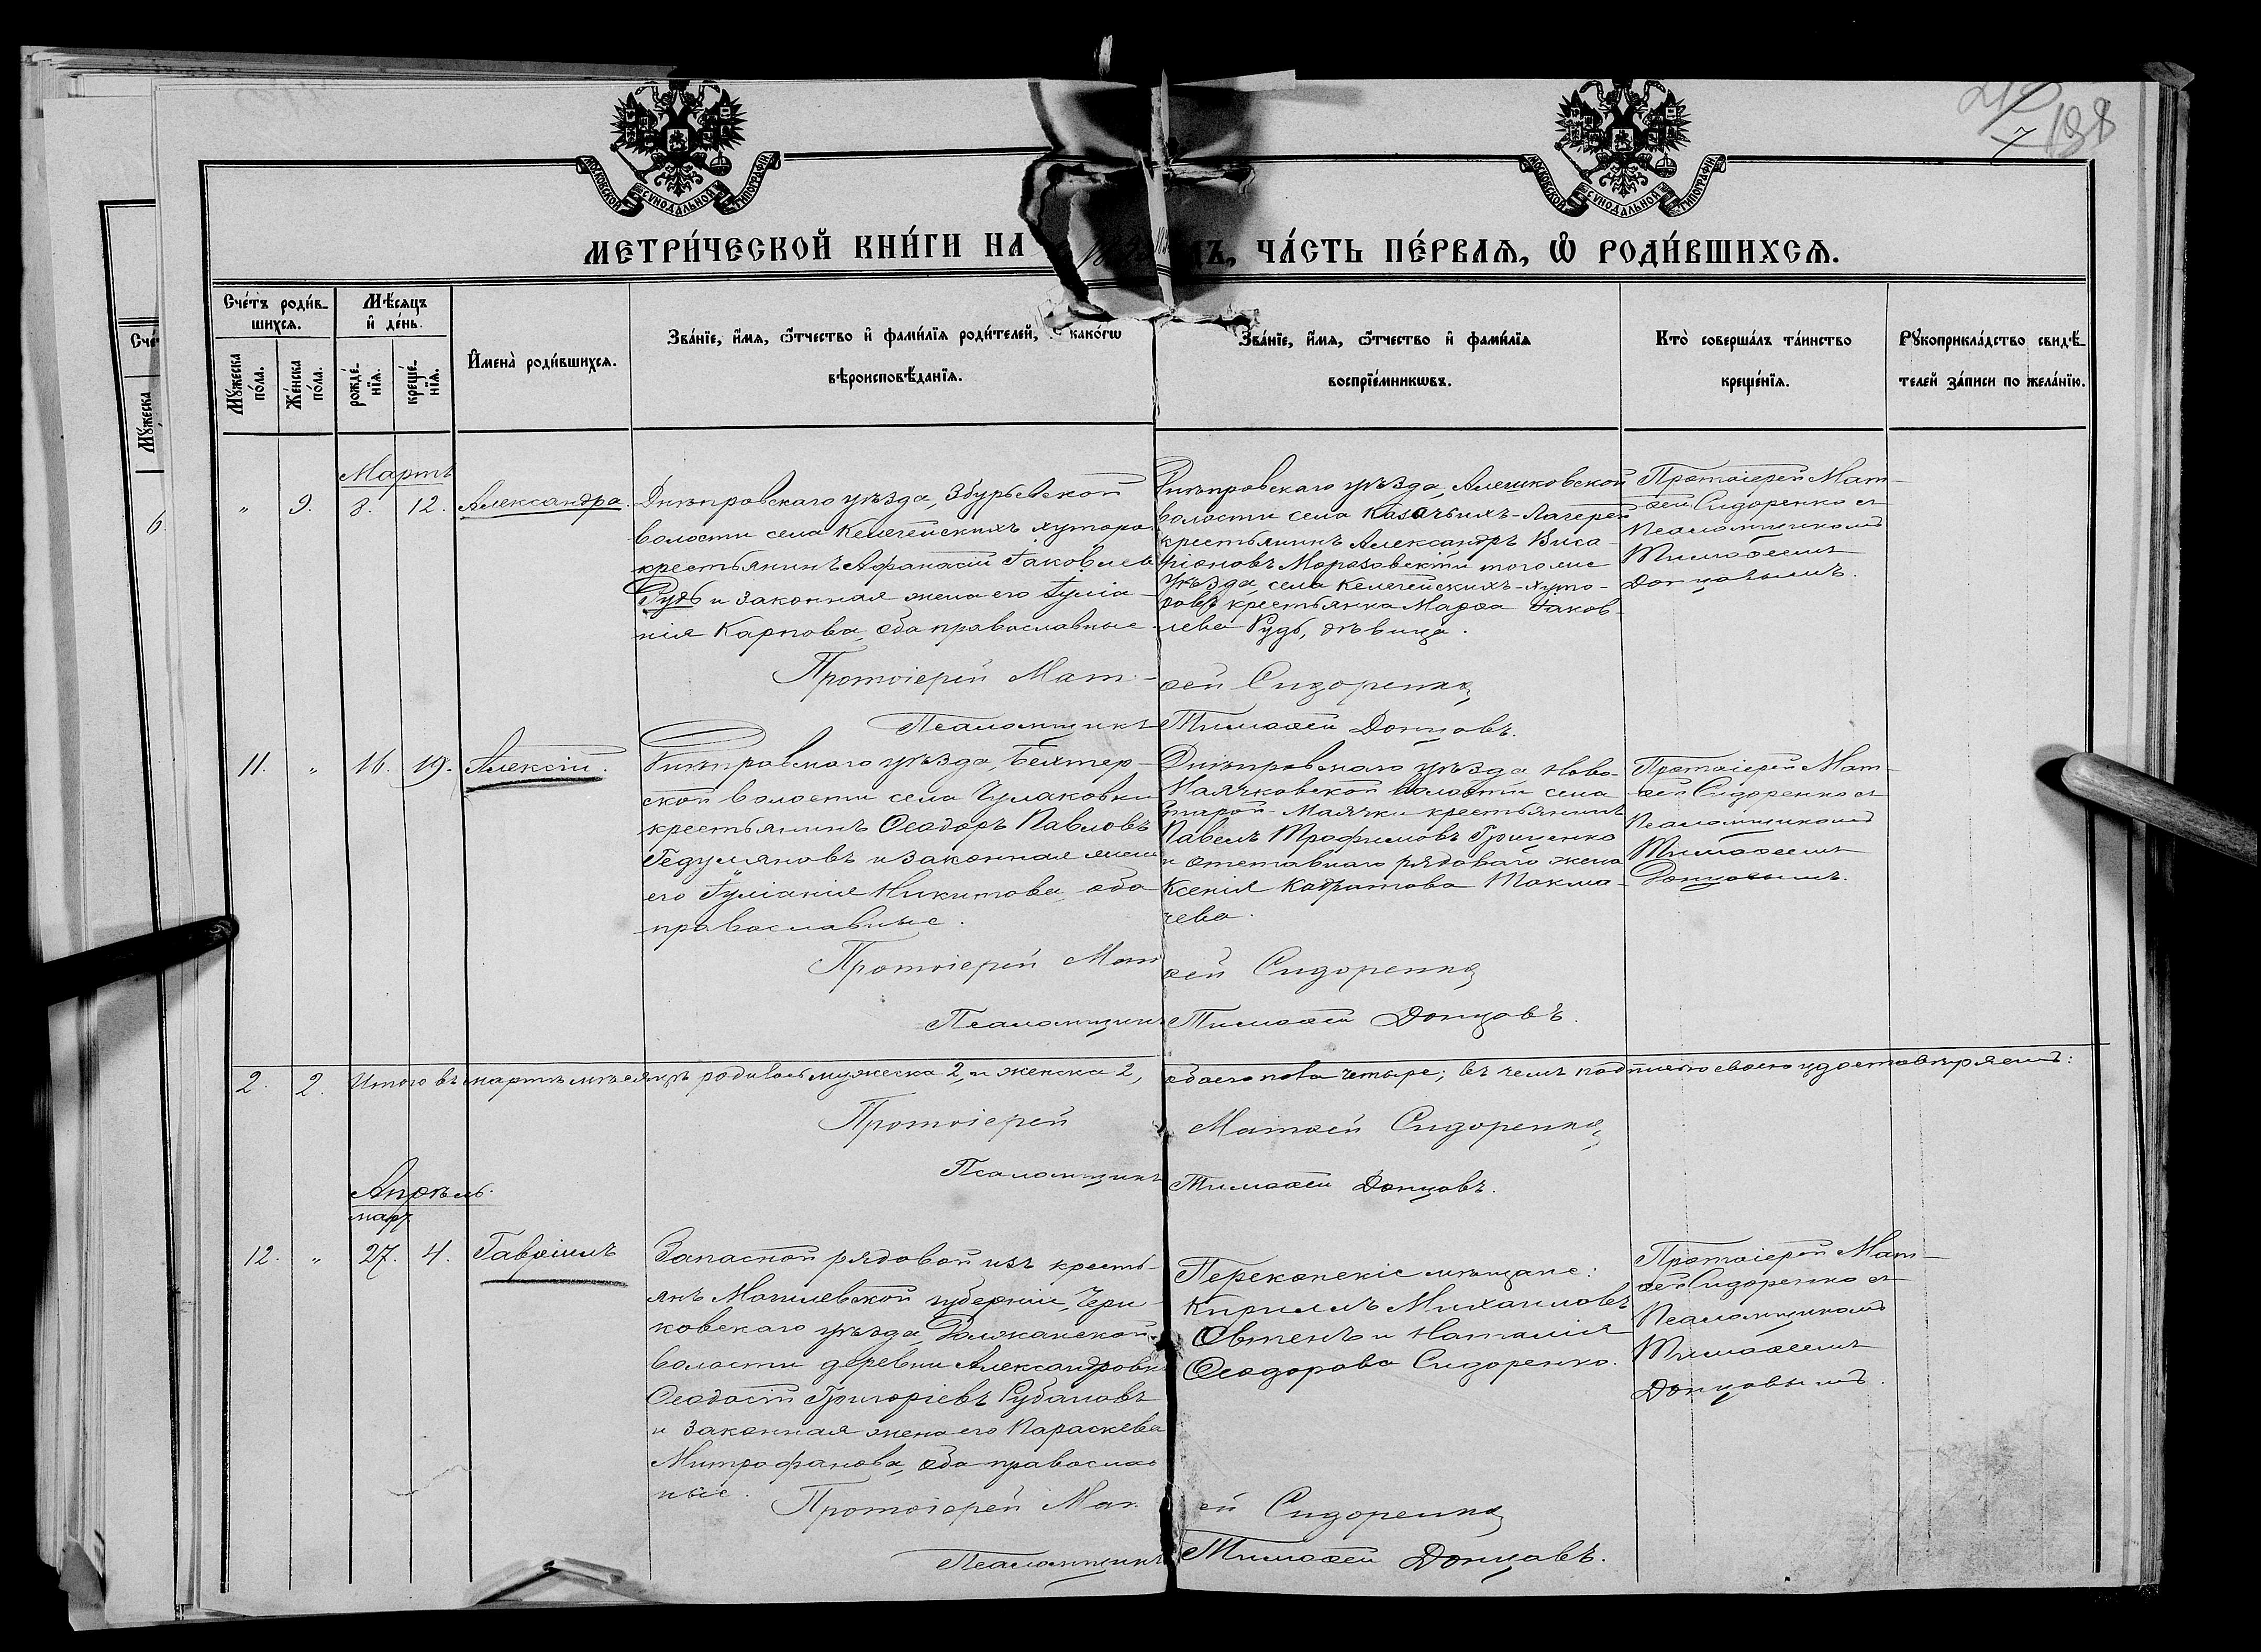 7 198
МОСКОВСКОЙ СѴНОДАЛЬНОЙ ТИПОГРАФІИ
МОСКОВСКОЙ СѴНОДАЛЬНОЙ ТИПОГРАФІИ
МЕТРИ́ЧЕСКОЙ КНИ́ГИ НА ДЪ, ЧА́СТЬ ПЕ́РВАѦ, Ѡ҆ РОДИ́ВШИХСѦ.
Сче́тъ роди́в-
шихсѧ.
Мѣ́сѧцъ
и҆ де́нь.
Мꙋ́жеска
по́ла.
Же́нска
по́ла.
рожде́-
нїѧ.
креще́-
нїѧ.
И҆мена̀ роди́вшихсѧ.
Зва́нїе, и҆́мѧ, ѻ҆́тчество и҆ фами́лїѧ роди́телей, како́гѡ
вѣроисповѣ́данїѧ.
Зва́нїе, и҆́мѧ, ѻ҆́тчество и҆ фами́лїѧ
воспрїе́мникѡвъ.
Кто̀ соверша́лъ та́инство
креще́нїѧ.
Рꙋкоприкла́дство свидѣ́-
телей за́писи по жела́нїю.
Сче
Мꙋ́жеска
6.
Мартъ
„ 9. 8. 12. Александра.
Днѣпровскаго уѣзда, Збурьевской
волости села Келегейскихъ хуторо
крестьянинъ Афанасій Іаковлев
Рудь и законная жена его Іуліа-
нія Карпова, оба православные
Днѣпровскаго уѣзда, Алешковской
волости села Казачьихъ-Лагерей
крестьянинъ Александръ Виса-
ріоновъ Морозовскій и того же
уѣзда, села Келегейскихъ-хуто-
ровъ крестьянка Марѳа Іаков-
лева Рудь, дѣвица.
Протоіерей Мат-
ѳей Сидоренко съ
Псаломщикомъ
Тимоѳеемъ
Донцовымъ.
Протоіерей Мат-ѳей Сидоренко
Псаломщикъ Тимоѳей Донцовъ.
11. „ 16. 19. Алексій.
Днѣпровскаго уѣзда, Бехтер-
ской волости села Чулаковки
крестьянинъ Ѳеодоръ Павловъ
Гедуляновъ и законная жена
его Іуліанія Никитова, оба
православные.
Днѣпровскаго уѣзда Ново-
Маячковской волости села
Старой-Маячки крестьянинъ
Павелъ Трофимовъ Гриценко
и отставнаго рядоваго жена
Ксенія Кодратова Токма-
чева.
Протоіерей Мат-
ѳей Сидоренко съ
Псаломщикомъ
Тимоѳеемъ
Донцовымъ.
Протоіерей Мат ѳей Сидоренко
Псаломщикъ Тимоѳей Донцовъ.
2. 2. Итого въ мартѣ мѣсяцѣ родилось мужеска 2, и женска 2, обоего пола четыре; въ чемъ подписью своею удостовѣряемъ:
Протоіерей Матѳей Сидоренко
Псаломщикъ Тимоѳей Донцовъ.
Апрѣль.
мар.
12. „ 27. 4. Гавріилъ
Запасной рядовой изъ кресть-
янъ Могилевской губерніи, Чери-
ковскаго уѣзда, Должанской
волости деревни Александровки
Ѳеодосій Григоріевъ Рубановъ
и законная жена его Параскева
Митрофанова, оба православ
ные.
Перекопскіе мѣщане:
Кириллъ Михаиловъ
Овтенъ и Наталія
Ѳеодорова Сидоренко.
Протоіерей Мат-
ѳей Сидоренко съ
Псаломщикомъ
Тимоѳеемъ
Донцовымъ.
Протоіерей Мат ей Сидоренко
Псаломщикъ Тимоѳей Донцовъ.